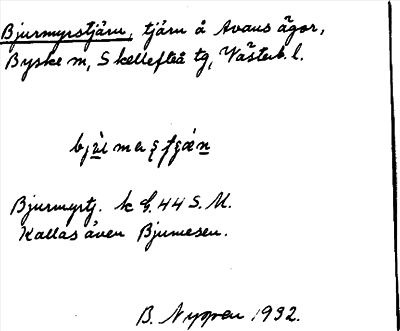 Bjurmyrstjärn, tjärn å Avans ägor,
Byske sn, Skellefteå tg, Västerb. l.
Bjurmyrtj. k G. 44 S.M.
Kallas även Bjurmesen.
B. Nygren 1932.